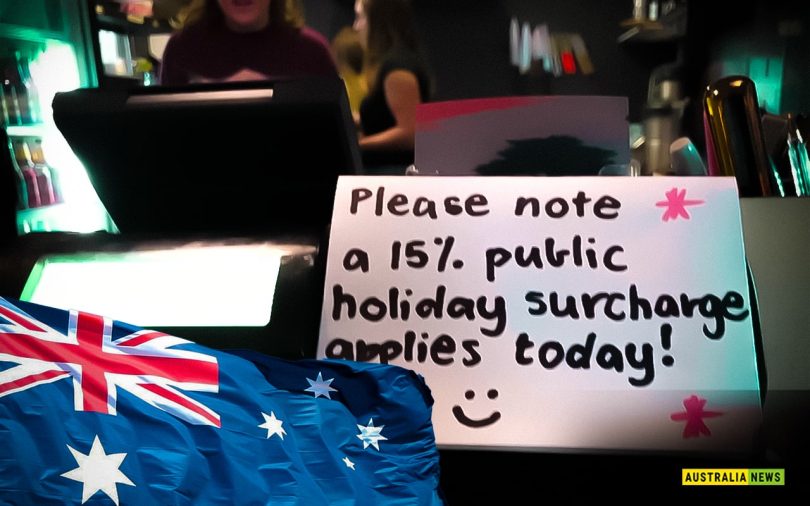 Please note
a 15% public
holiday surcharge
applies today!
AUSTRALIA NEWS